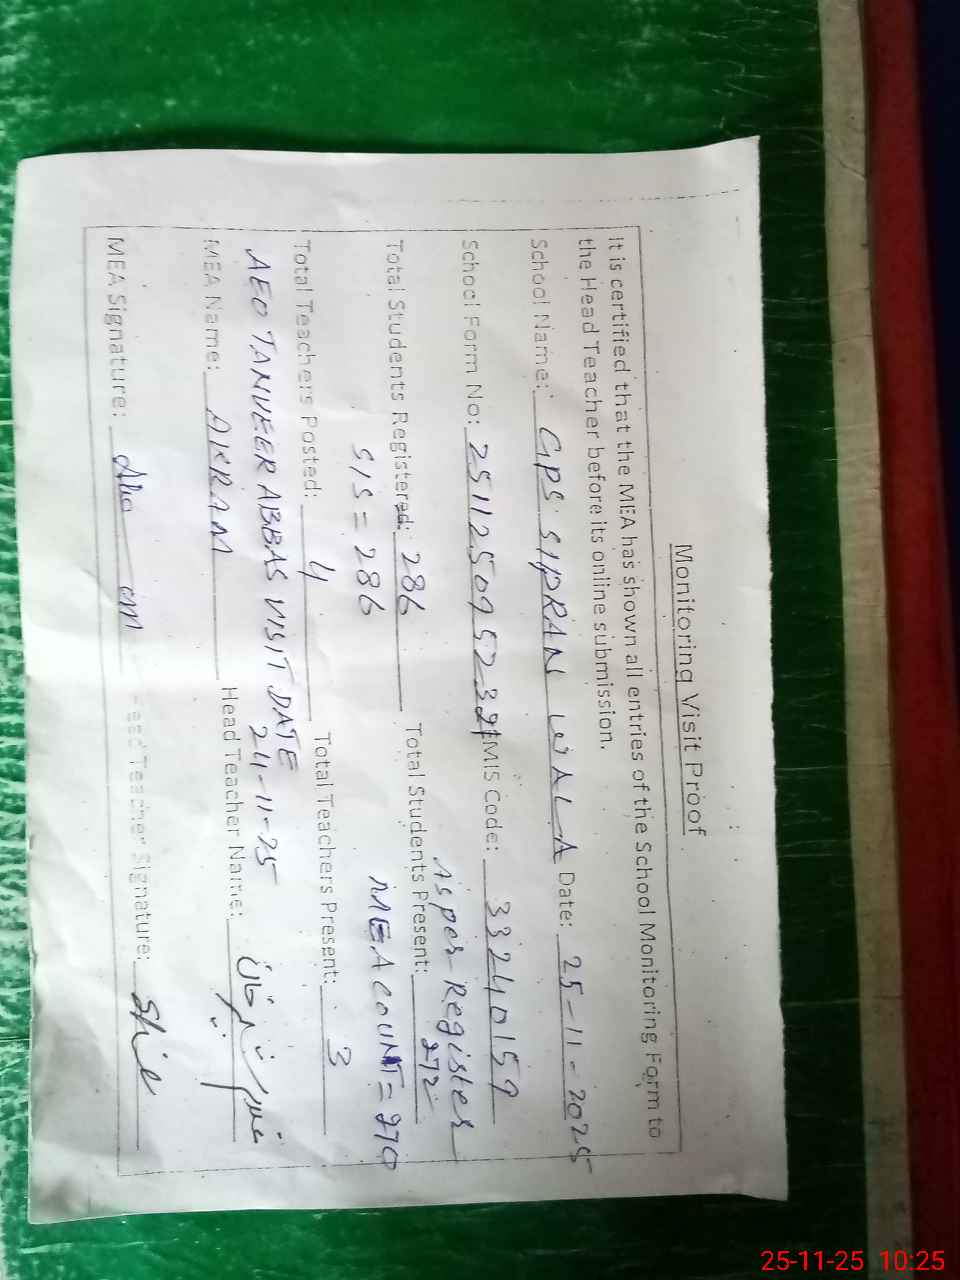 Monitoring Visit Proof
it is certified that the MEA has shown all entries of the School Monitoring Form to
the Head Teacher before its online submission.
School Name: GPS SIPRAN WALA Date: 25-11-2025
School Form No: 2511250952321 EMIS Code: 33240159
As per Register
Total Students Registered: 286 Total Students Present: 272
SIS = 286 MEA COUNT = 270
Total Teachers Posted: 4 Total Teachers Present: 3
AEO TANVEER ABBAS VISIT DATE
24-11-25
MEA Name: AKRAM Head Teacher Name:
MEA Signature: Head Teacher Signature:
25-11-25 10:25